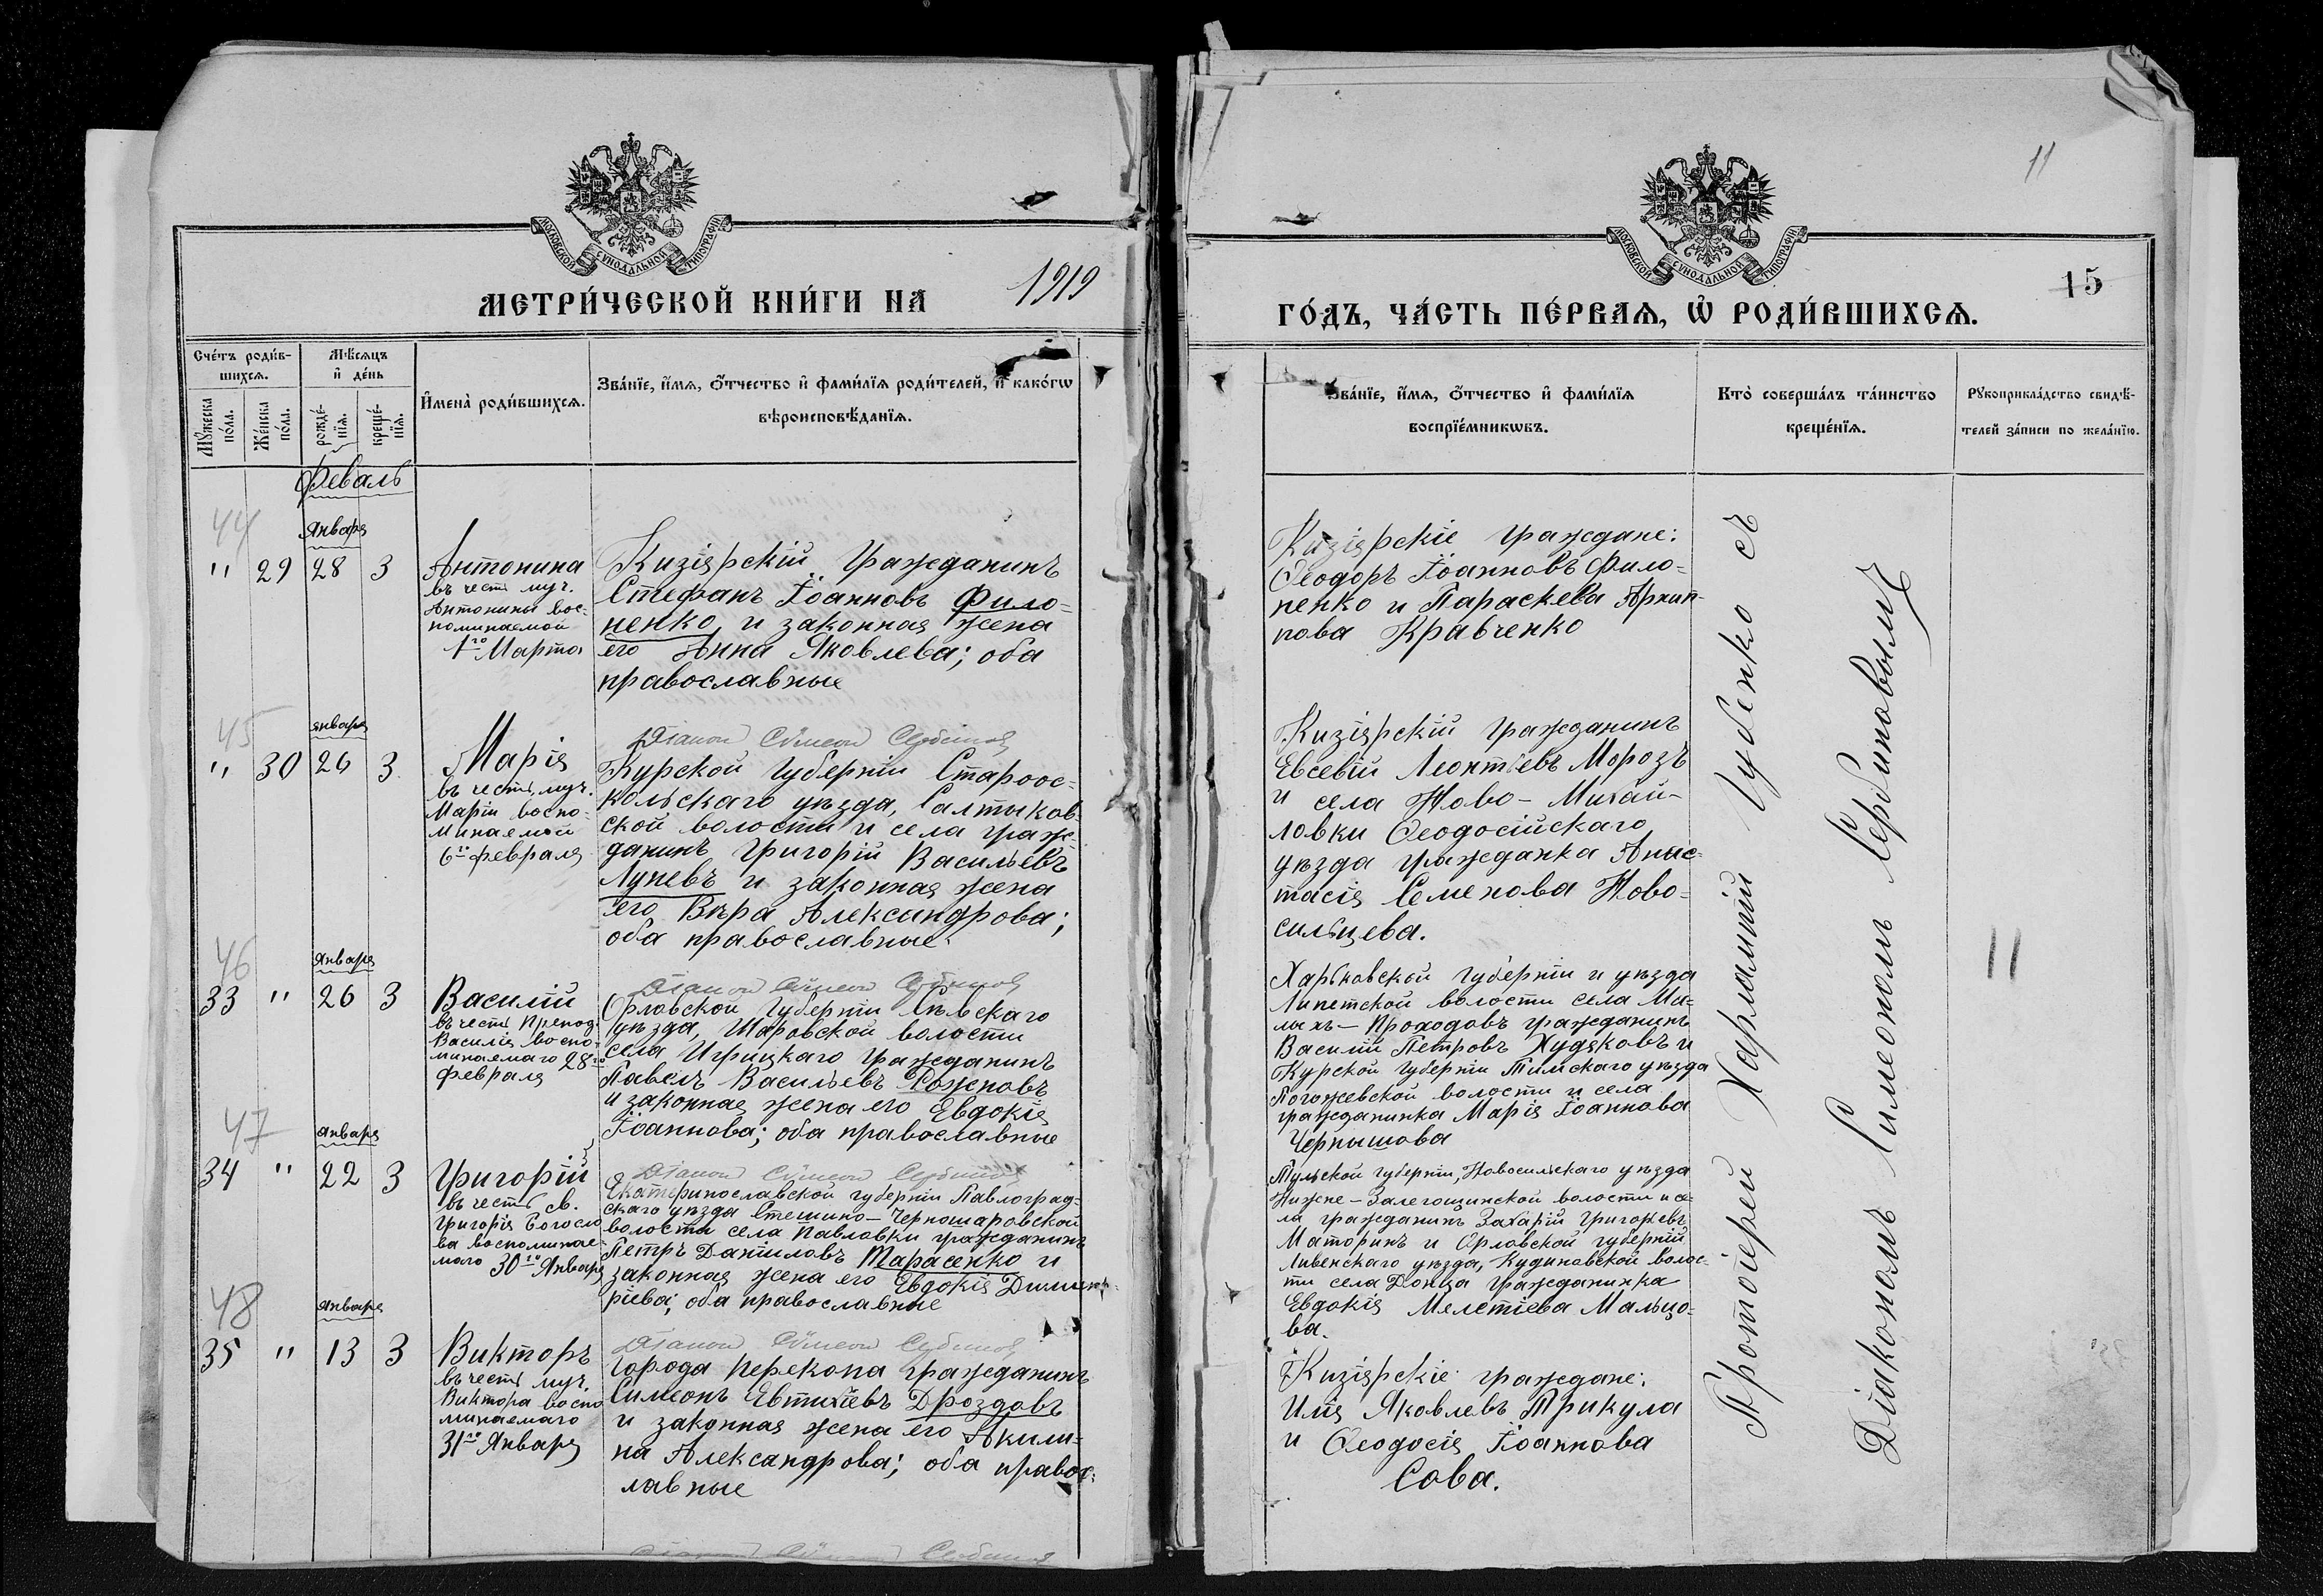 МОСКОВСКОЙ СѴНОДАЛЬНОЙ ТИПОГРАФІИ
МЕТРИ́ЧЕСКОЙ КНИ́ГИ НА 1919
Сче́тъ роди́в-
шихсѧ.
Мꙋ́жеска по́ла.
Же́нска по́ла.
Мѣ́сѧцъ
и҆ де́нь
рожде́-
нїѧ.
креще́-
нїѧ.
И҆мена̀ роди́вшихсѧ.
Зва́нїе, и҆́мѧ, ѻ҆́тчество и҆ фами́лїѧ роди́телей, и҆ како́гѡ
вѣроисповѣ́данїѧ.
Феваль
44
Января
" 29 28 3
Антонина
въ честь муч.
Антонины вос-
поминаемой
1го Марта
Кизіярскій гражданинъ
Стефанъ Іоанновъ Фило-
ненко и законная жена
его Анна Яковлева; оба
православные
45
января
" 30 26 3
Марія
въ честь муч.
Маріи воспо-
минаемой
6го февраля
Діаконъ Сѵмеонъ Сербиновъ
Курской губерніи Староос-
кольскаго уѣзда, Салтыков-
ской волости и села граж-
данинъ Григорій Васильевъ
Луневъ и законная жена
его Вѣра Александрова;
оба православные
46
января
33 " 26 3
Василій
въ честь Препод.
Василія воспо-
минаемаго 28го
февраля
Діаконъ Сѵмеонъ Сербиновъ
Орловской губерніи Сѣвскаго
уѣзда, Шаровской волости
села Игрицкаго гражданинъ
Павелъ Васильевъ Сожновъ
и законная жена его Евдокія
Іоаннова; оба православные
47
января
34 " 22 3
Григорій
въ честь св.
Григорія Богосло
ва воспоминае-
маго 30го Января
Діаконъ Сѵмеонъ Сербиновъ
Екатеринославской губерніи Павлоград-
скаго уѣзда Стешино-Черношаровской
волости села Павловки гражданинъ
Петръ Даніиловъ Тарасенко и
законная жена его Евдокія Димит-
ріева; оба православные
48
января
35 " 13 3
Викторъ
въ честь муч.
Виктора воспо
минаемаго
31го Января
Діаконъ Сѵмеонъ Сербиновъ
Города Перекопа гражданинъ
Симеонъ Евтихіевъ Дроздовъ
и законная жена его Акили-
на Александрова; оба правос-
лавные
Діаконъ Сѵмеонъ Сербиновъ
11
МОСКОВСКОЙ СѴНОДАЛЬНОЙ ТИПОГРАФІИ
15
ГО́ДЪ, ЧА́СТЬ ПЕ́РВАѦ, Ѡ҆ РОДИ́ВШИХСѦ.
Зва́нїе, и҆́мѧ, ѻ҆́тчество и҆ фами́лїѧ
воспрїе́мникѡвъ.
Кто̀ соверша́лъ та́инство
креще́нїѧ.
Рꙋкоприкла́дство свидѣ́-
телей за́писи по жела́нїю.
Кизіярскіе граждане:
Ѳеодоръ Іоанновъ Фило-
ненко и Параскева Архип-
пова Кравченко
Кизіярскій гражданинъ
Евсевій Леонтьевъ Морозъ
и села Ново-Михай-
ловки Ѳеодосійскаго
уѣзда гражданка Анас-
тасія Семенова Ново-
сильцева.
Харьковской губерніи и уѣзда
Липетской волости села Ма-
лыхъ-Проходовъ гражданинъ
Василій Петровъ Худяковъ и
Курской губерніи Тимскаго уѣзда
Погожевской волости и села
гражданинка Марія Іоаннова
Чернышова
Тульской губерніи, Новосильскаго уѣзда
Нижне-Залегощинской волости и се-
ла гражданинъ Захарій Григорьевъ
Маторинъ и Орловской губерній
Ливенскаго уѣзда, Кудиновской волос-
ти села Донца гражданинка
Евдокія Мелетіева Мальцо-
ва.
Кизіярскіе граждане:
Илія Яковлевъ Трикула
и Ѳеодосія Іоаннова
Сова.
Протоіерей Харлампій Цубенко съ
Діакономъ Симеономъ Сербиновымъ
11